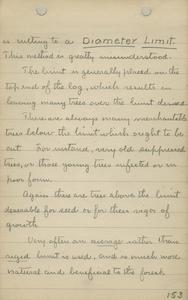 is cutting to a Diameter Limit.
This method is greatly misunderstood.
The limit is generally placed on the
top end of the log, which results in
leaving many trees over the limit desired.
There are always many merchantable
trees below the limit which ought to be
cut. For instance, very old suppressed
trees, or those young trees infected or in
poor form.
Again there are trees above the limit
desirable for seed or for their vigor of
growth.
Very often an average rather than
rigid limit is used, and is much more
natural and beneficial to the forest.
153